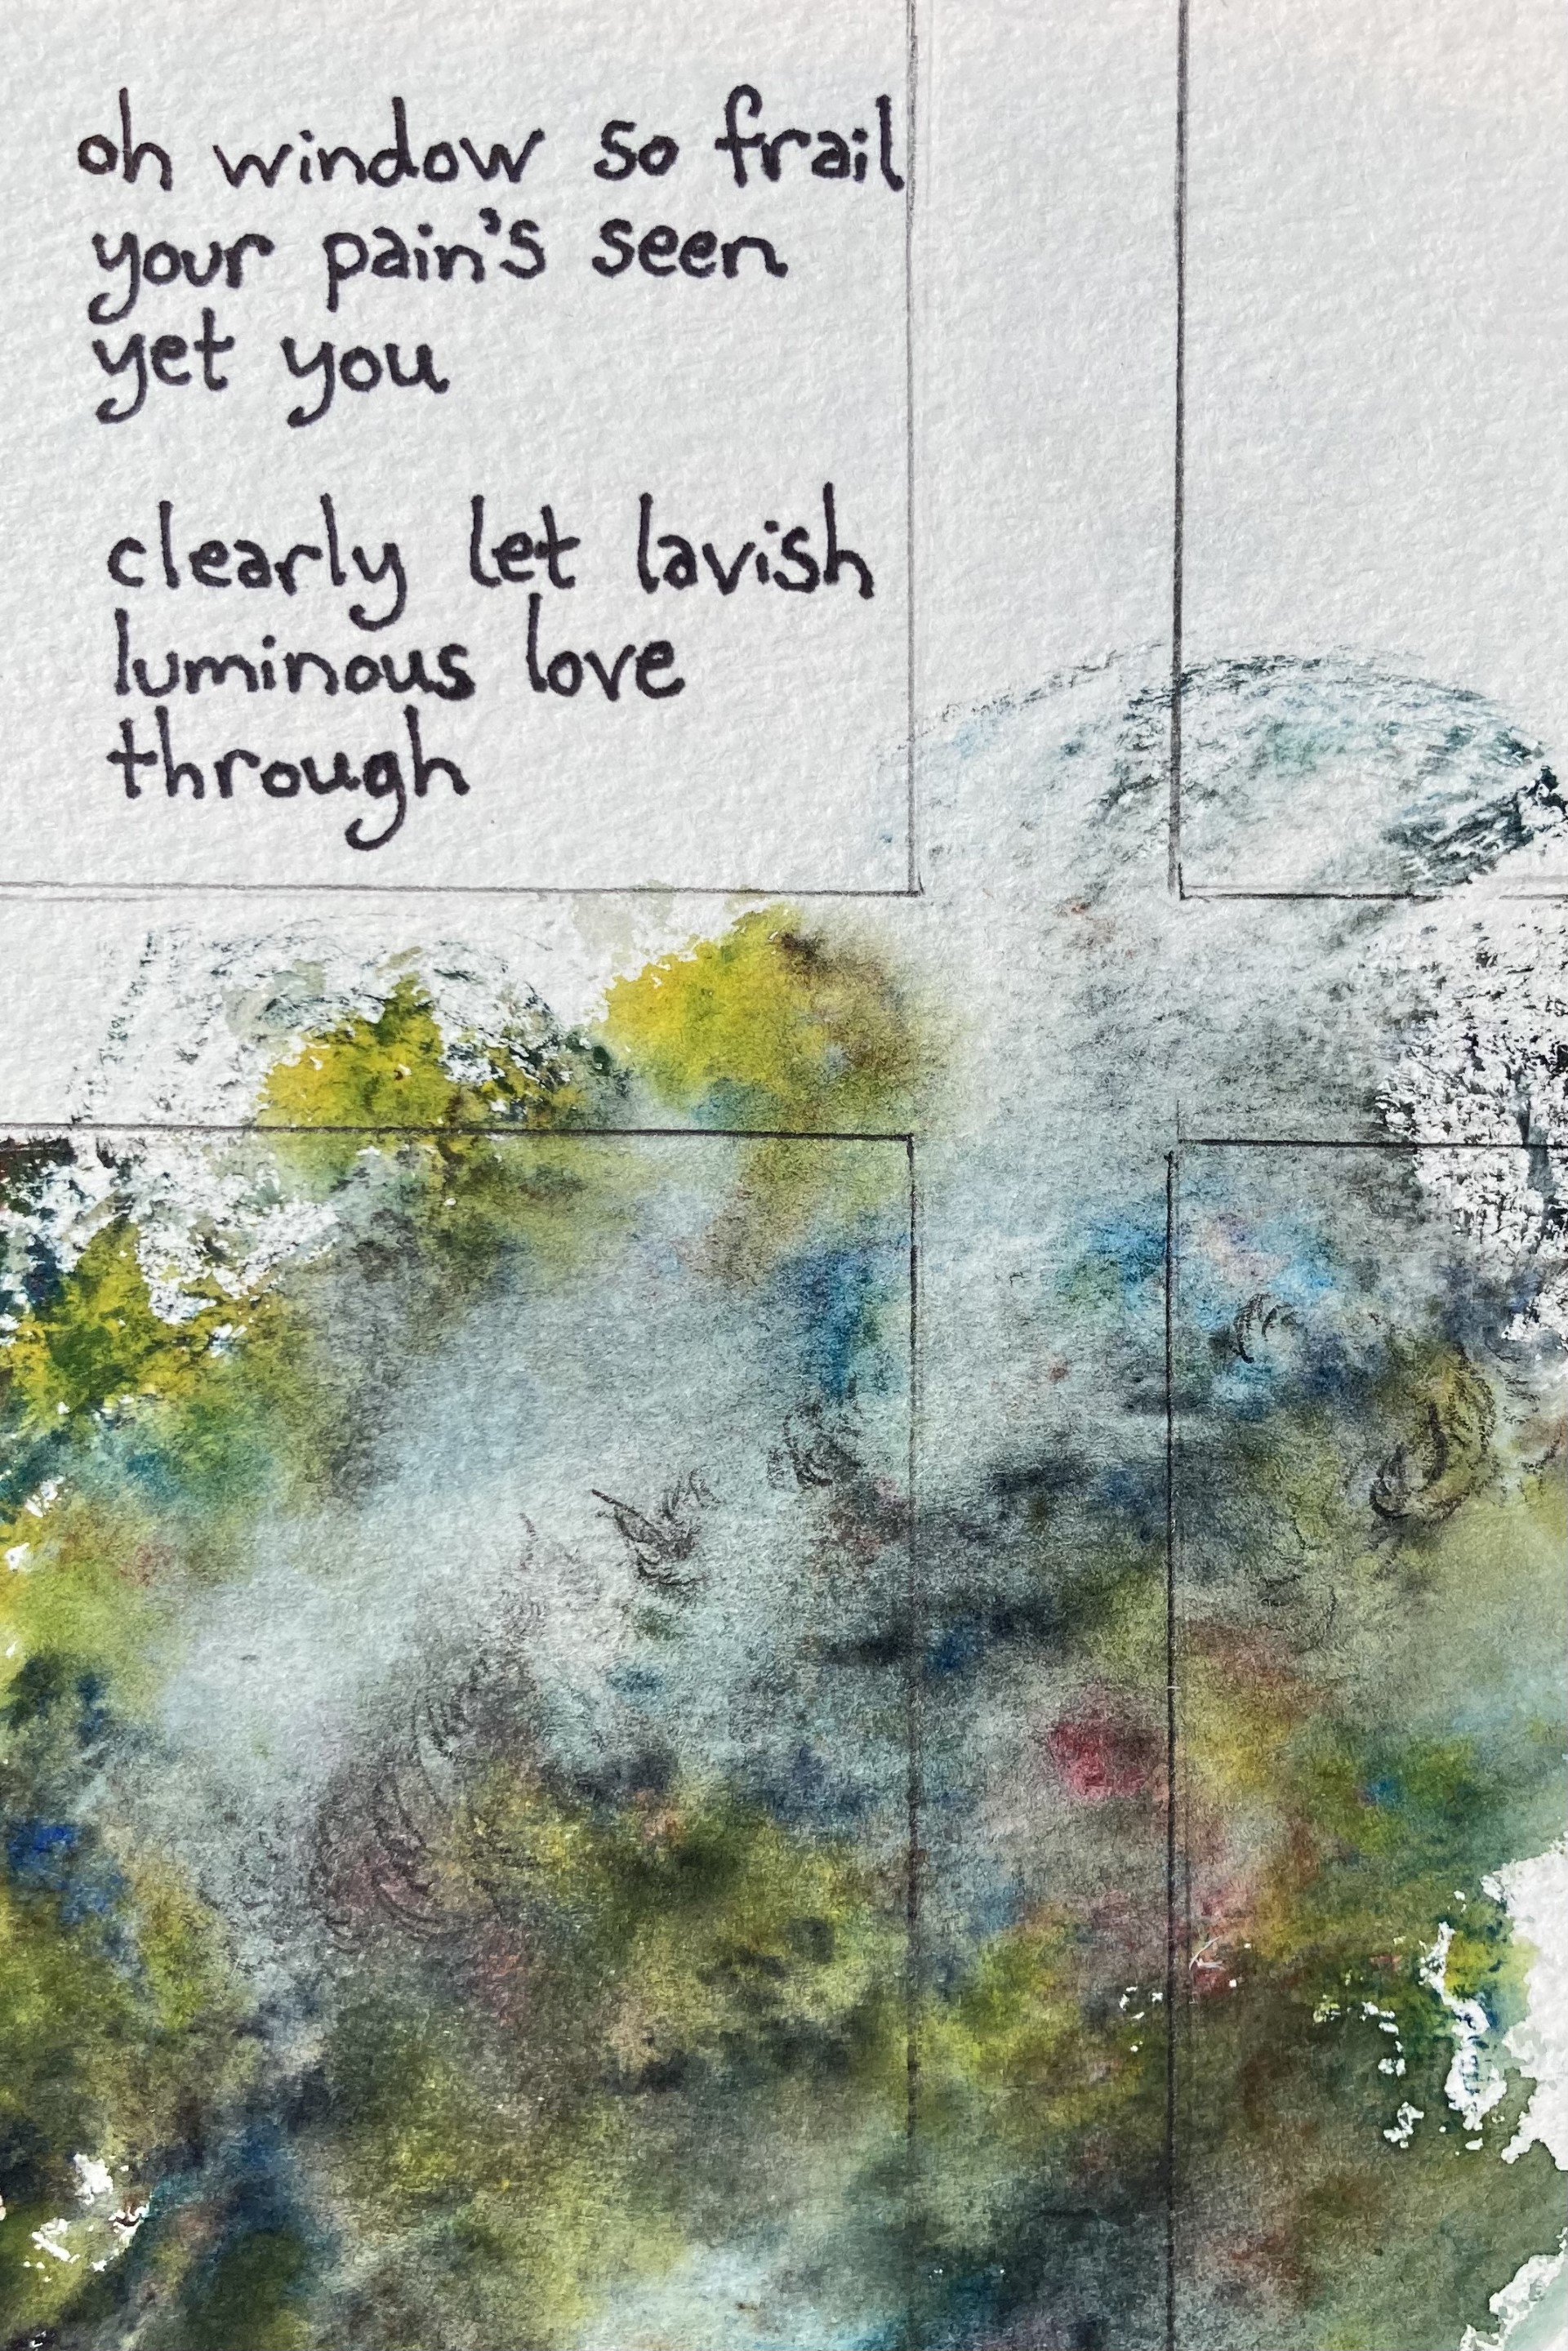 oh window so frail
your pain's seen
yet you
clearly let lavish
luminous love
through